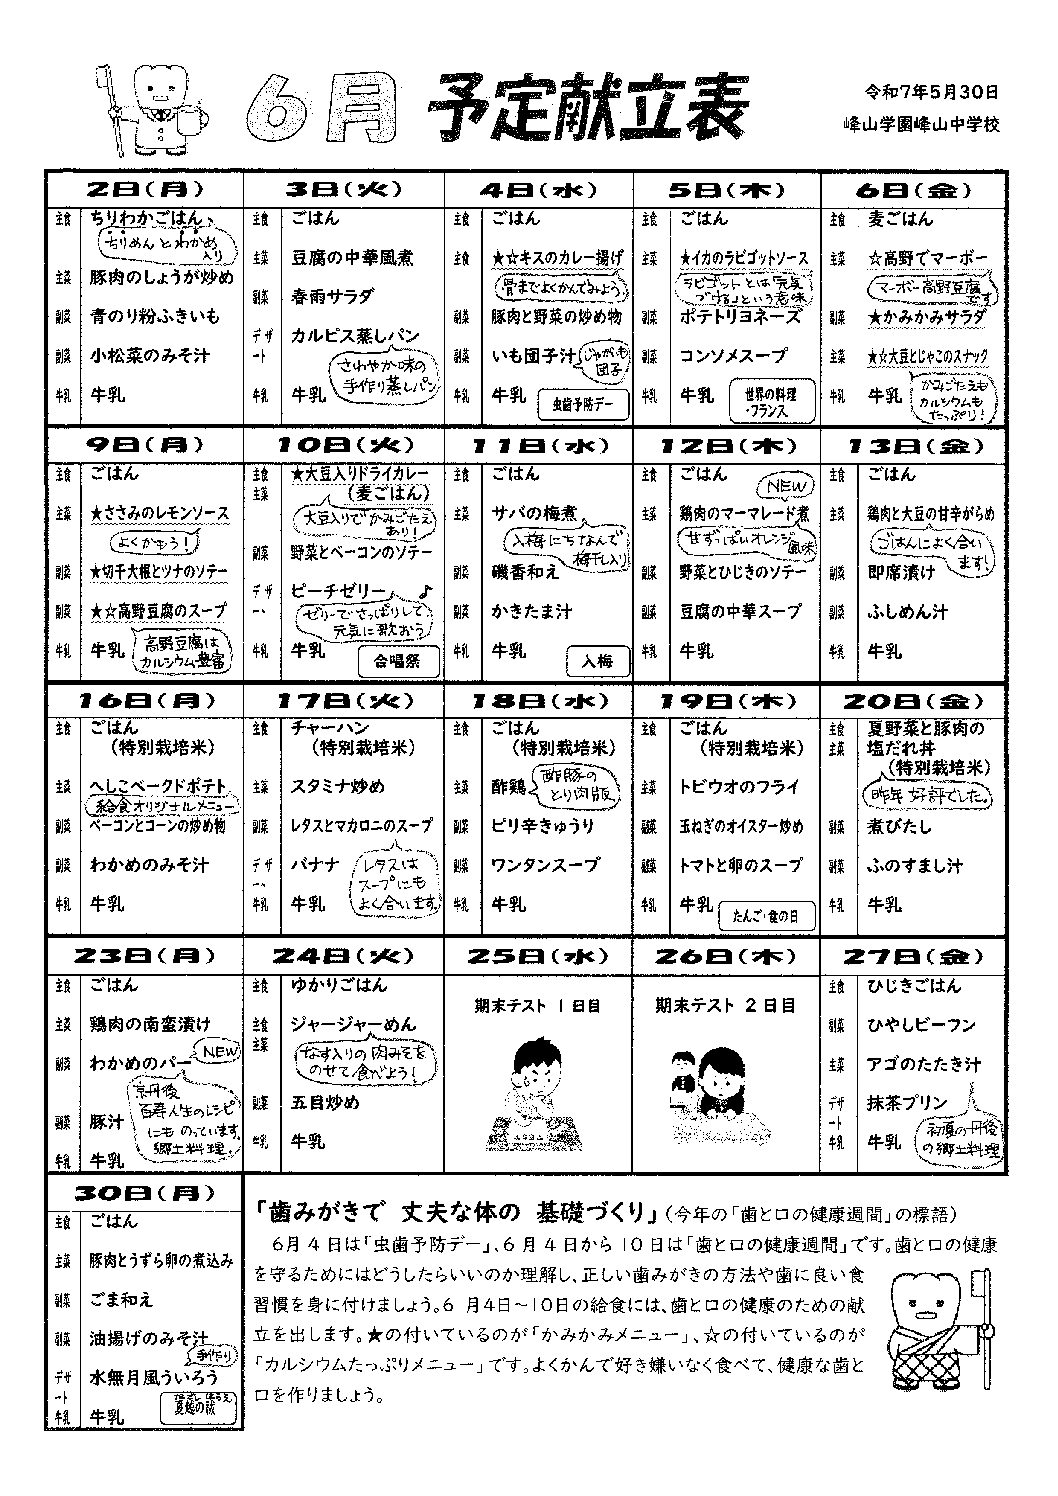 6月 予定献立表
令和7年5月30日
峰山学園峰山中学校
2日(月)
主食 ちりわかごはん
ちりめんとわかめ入り
主菜 豚肉のしょうが炒め
副菜 青のり粉ふきいも
副菜 小松菜のみそ汁
牛乳 牛乳
3日(火)
主食 ごはん
主菜 豆腐の中華風煮
副菜 春雨サラダ
デザート カルピス蒸しパン
さわやか味の
手作り蒸しパン
牛乳 牛乳
4日(水)
主食 ごはん
主食 ★☆キスのカレー揚げ
骨までよくかんでみよう
副菜 豚肉と野菜の炒め物
副菜 いも団子汁
じゃがも
団子
牛乳 牛乳
虫歯予防デー
5日(木)
主食 ごはん
主菜 ★イカのラビゴットソース
ラビゴットとは「元気
づける」という意味
副菜 ポテトリヨネーズ
副菜 コンソメスープ
牛乳 牛乳
世界の料理
・フランス
6日(金)
主食 麦ごはん
主菜 ☆高野でマーボー
マーボー高野豆腐
です
副菜 ★かみかみサラダ
主菜 ★☆大豆とじゃこのスナック
牛乳 牛乳
かみごたえも
カルシウムも
たっぷり!
9日(月)
主食 ごはん
主菜 ★ささみのレモンソース
よくかもう!
副菜 ★切干大根とツナのソテー
副菜 ★☆高野豆腐のスープ
牛乳 牛乳
高野豆腐は
カルシウム豊富
10日(火)
主食 ★大豆入りドライカレー
主菜 (麦ごはん)
大豆入りでかみごたえ
あり!
副菜 野菜とベーコンのソテー
デザート ピーチゼリー ♪
ゼリーでさっぱりして
元気に歌おう
牛乳 牛乳
合唱祭
11日(水)
主食 ごはん
主菜 サバの梅煮
入梅にちなんで
梅干し入り
副菜 磯香和え
副菜 かきたま汁
牛乳 牛乳
入梅
12日(木)
主食 ごはん
NEW
主菜 鶏肉のマーマレード煮
甘ずっぱいオレンジ
風味
副菜 野菜とひじきのソテー
副菜 豆腐の中華スープ
牛乳 牛乳
13日(金)
主食 ごはん
主菜 鶏肉と大豆の甘辛がらめ
ごはんによく合い
ます!
副菜 即席漬け
副菜 ふしめん汁
牛乳 牛乳
16日(月)
主食 ごはん
(特別栽培米)
主菜 へしこベークドポテト
給食オリジナルメニュー
副菜 ベーコンとコーンの炒め物
副菜 わかめのみそ汁
牛乳 牛乳
17日(火)
主食 チャーハン
(特別栽培米)
主菜 スタミナ炒め
副菜 レタスとマカロニのスープ
デザート バナナ
レタスは
スープにも
よく合います。
牛乳 牛乳
18日(水)
主食 ごはん
(特別栽培米)
主菜 酢鶏
酢豚の
とり肉版
副菜 ピリ辛きゅうり
副菜 ワンタンスープ
牛乳 牛乳
19日(木)
主食 ごはん
(特別栽培米)
主菜 トビウオのフライ
副菜 玉ねぎのオイスター炒め
副菜 トマトと卵のスープ
牛乳 牛乳
たんご・食の日
20日(金)
主食 夏野菜と豚肉の
主菜 塩だれ丼
(特別栽培米)
昨年好評でした。
副菜 煮びたし
副菜 ふのすまし汁
牛乳 牛乳
23日(月)
主食 ごはん
主菜 鶏肉の南蛮漬け
副菜 わかめのパー
NEW
京丹後
百寿人生のレシピ
にものっています。
郷土料理。
副菜 豚汁
牛乳 牛乳
24日(火)
主食 ゆかりごはん
主食 ジャージャーめん
主菜
なす入りの肉みそを
のせて食べよう!
副菜 五目炒め
牛乳 牛乳
25日(水)
期末テスト 1日目
26日(木)
期末テスト 2日目
27日(金)
主食 ひじきごはん
副菜 ひやしビーフン
主菜 アゴのたたき汁
デザート 抹茶プリン
牛乳 牛乳
初夏の丹後
の郷土料理
30日(月)
主食 ごはん
主菜 豚肉とうずら卵の煮込み
副菜 ごま和え
副菜 油揚げのみそ汁
手作り
デザート 水無月風ういろう
牛乳 牛乳
「歯みがきで 丈夫な体の 基礎づくり」(今年の「歯と口の健康週間」の標語)
6月4日は「虫歯予防デー」、6月4日から10日は「歯と口の健康週間」です。歯と口の健康
を守るためにはどうしたらいいのか理解し、正しい歯みがきの方法や歯に良い食
習慣を身に付けましょう。6月4日~10日の給食には、歯と口の健康のための献
立を出します。★の付いているのが「かみかみメニュー」、☆の付いているのが
「カルシウムたっぷりメニュー」です。よくかんで好き嫌いなく食べて、健康な歯と
口を作りましょう。